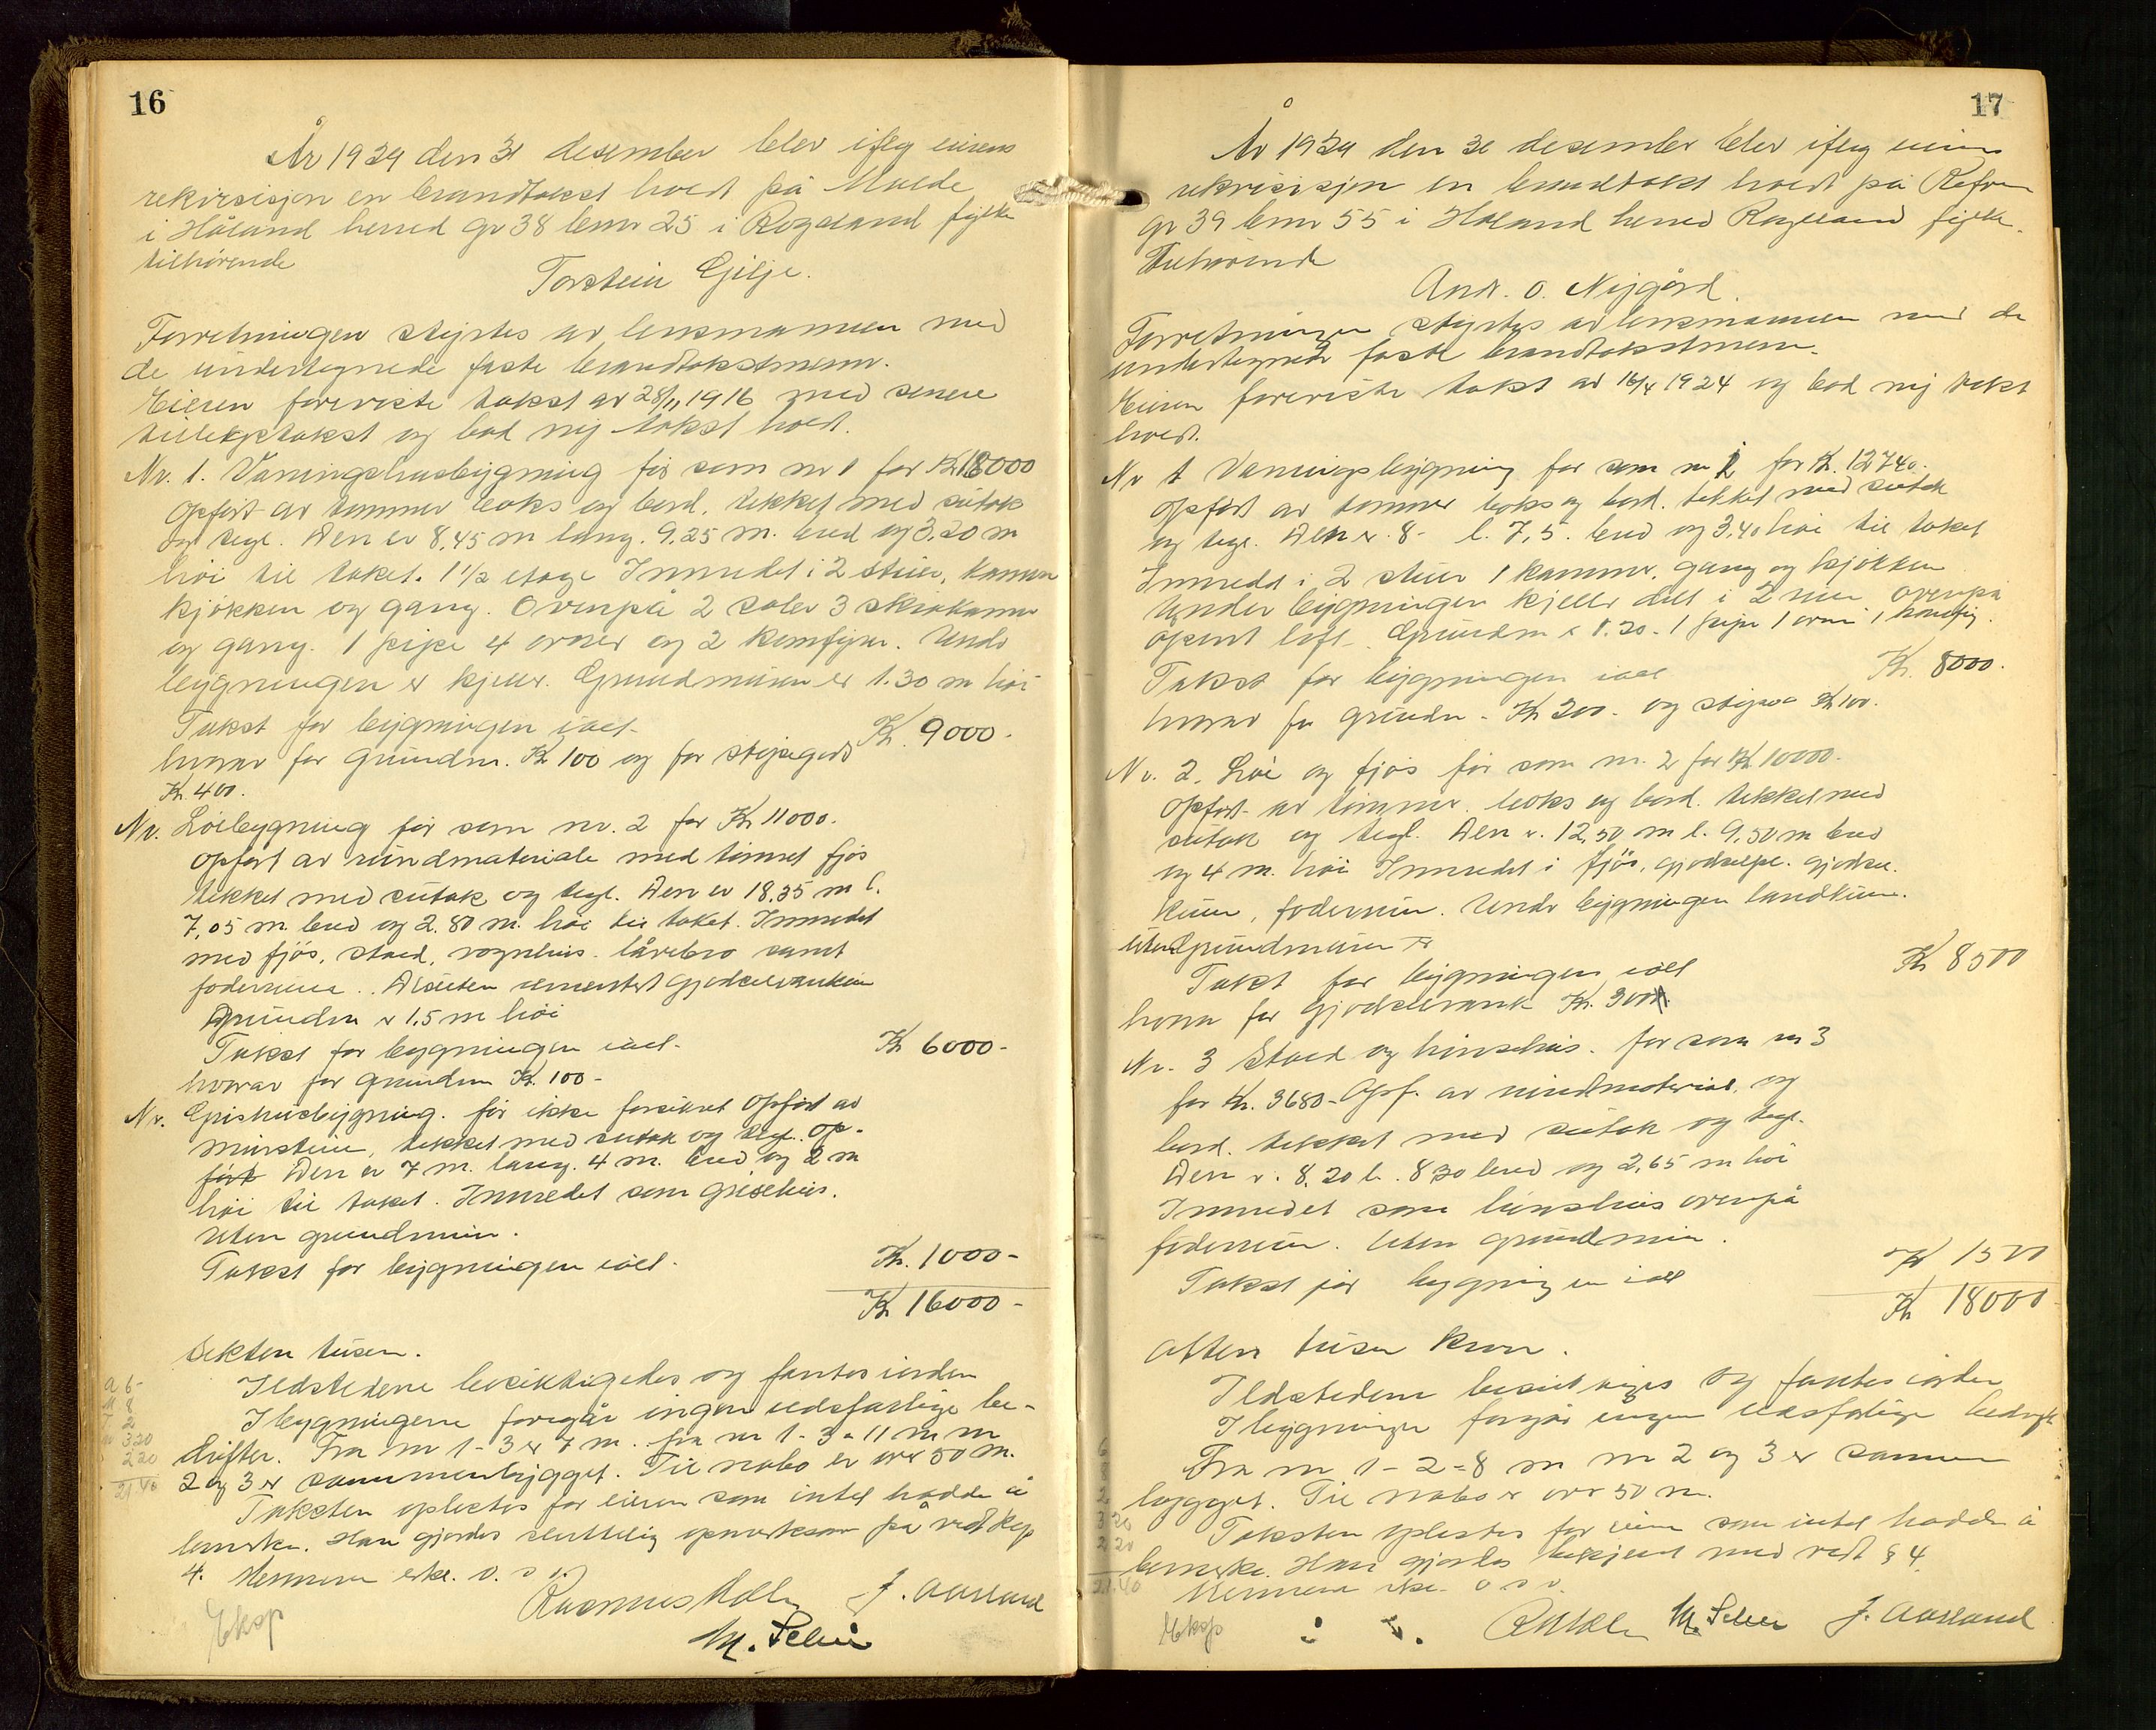 16
År 1929 den 31 desember blev ifølg eierens
rekvisisjon en brandtakst holdt på Malde
i Håland herred gr 38 bnr 25 i Rogaland fylke
tilhørende
Torstein Gilje.
Forretningen styrtes av lensmannen med
de undertegnede faste brandtakstmenn.
Eieren foreviste takst av 28/11 1916 med senere
tilleggstakst og bad ny takst holdt.
Nr. 1. Vaningshusbygning før som nr 1 for Kr 18000
Opført av tømmer boks og bord, tekket med sutak
og tegl. Den er 8,45 m lang. 9,25 m. bred og 3,20 m
høi til taket. 1 1/2 etage Innredet i 2 stuer, kammer
kjøkken og gang. Ovenpå 2 saler 3 skråkamre
og gang. 1 pipe 4 ovner og 2 komfyrer. Under
bygningen er kjeller. Grundmuren er 1.30 m høi
Takst for bygningen ialt.
Kr. 9000.
hvorav for grundm. Kr 100 og for skjegard
Kr. 400.
Nr. Løebygning før som nr. 2 for Kr 11000.
opført av rundmateriale med tømret fjøs
tekket med sutak og tegl. Den er 18,35 m l.
7,05 m. bred og 2.80 m. høi til taket. Innredet
med fjøs, stald, vognhus. låvebro samt
foderrum. Desuten sementert gjødselkum
Grundm er 1,5 m høi
Takst for bygningen ialt.
Kr 6000-
hvorav for grundm Kr. 100-
Nr. Grishusbygning. før ikke forsikret Opført av
murstein, tekket med sutak og tegl. Op-
ført Den er 7 m. lang. 4 m. bred og 2 m
høi til taket. Innredet som grisehus.
Uten grundmur.
Takst for bygningen ialt.
Kr. 1000-
Kr 16000-
seksten tusen.
Ildstedene besiktigedes og fantes iorden
I bygningene foregår ingen ildsfarlige be-
drifter. Fra nr 1-3 er 7 m. fra nr 1-3 = 11 m nr
2 og 3 er sammenbygget. Til nabo er over 50 m.
Taksten oplestes for eieren som intet hadde å
bemerke. Han gjordes sluttelig opmerksom på vedt kap
4. Mennene erkl. o. s v.
Rasmus Molle J. Aarland
M. Selle
Eksp
a 6-
M 8
T 2
320
220
21.40
17
År 1929 den 31 desember blev ifølg eierens
rekvisisjon en brandtakst holdt på Refsn
gr 39 bnr 55 i Håland herred Rogaland fylke.
Tilhørende
Andr. O. Nygård.
Forretningen styrtes av lensmannen med de
undertegnede faste brandtakstmenn.
Eieren foreviste takst av 16/4 1924 og bad ny takst
holdt.
Nr 1 Vaningsbygning før som nr 1 for Kr. 12740.
opført av tømmer boks og bord. tekket med sutak
og tegl. Den er. 8- l. 7,5. bred og 3,40 høi til taket
Innredet i 2 stuer 1 kammer. gang og kjøkken
Under bygningen kjeller delt i 2 rum ovenpå
åpent loft. Grundm er 1.20. 1 pipe 1 ovn 1 komfyr.
Takst for bygningen ialt
Kr. 8000.
hvorav for grundm. Kr 200. og Kr 100.
Nr. 2. Løe og fjøs før som nr. 2 for Kr 10000.
opført av tømmer. boks og bord. tekket med
sutak og tegl. Den er. 12,50 m l. 9,50 m bred
og 4 m. høi Innredet i fjøs, gjødsel
kum, foderrum. Under bygningen landkum.
Uten Grundmuren er
Takst for bygningen ialt
Kr 8500
hvorav for gjødseltank Kr. 300.
Nr. 3 Stald og hønsehus. før som nr 3
for Kr. 3680- Opf. av rundmaterial. og
bord. tekket med sutak og tegl.
Den er. 8.20 l. 8 30 bred og 2,65 m høi
Innredet som hønsehus ovenpå
foderrum. Uten grundmur.
Takst for bygningen ialt
Kr 1500
Kr 18000
Atten tusen kroner.
Ildstedene besiktiges og fantes iorden
I bygningene foregår ingen ildsfarlige bedrift
Fra nr 1-2=8 m nr 2 og 3 er sammen
bygget. Til nabo er over 50 m.
Taksten oplestes for eieren som intet hadde å
bemerke. Han gjordes bekjent med vedt § 4
Mennene erkl. o s v.
R Molle M. Selle J. Aarland
Eksp
6
8
2
320
220
21.40